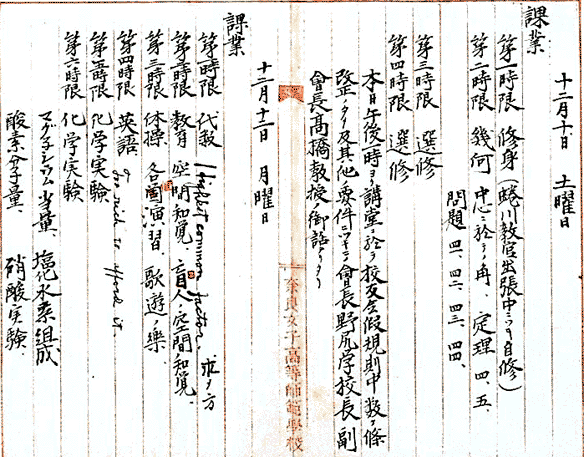 十二月十日 土曜日
課業
第一時限 修身(蜷川教官出張中ニツキ自修)
第二時限 幾何 中心ニ於ケル角、定理 四、五、
問題 四一、四二、四三、四四、
第三時限 選修
第四時限 選修
本日午後 時ヨリ講堂ニ於テ校友会假規則中数ヶ條
改正ノ件及其他ノ要件ニツキテ會長野尻学校長副
會長髙橋教授ノ御話アリタリ
奈良女子高等師範學校
十二月十二日 月曜日
課業
第一時限 代数 Highest common factor. 求メ方
第二時限 教育 空間知覚、盲人ノ空間知覚、
第三時限 体操 各個演習、歌遊、樂、
第四時限 英語
第五時限 化学実験
第六時限 化学実験
マグネシウム当量、塩化水素組成
酸素分子量、硝酸実験、